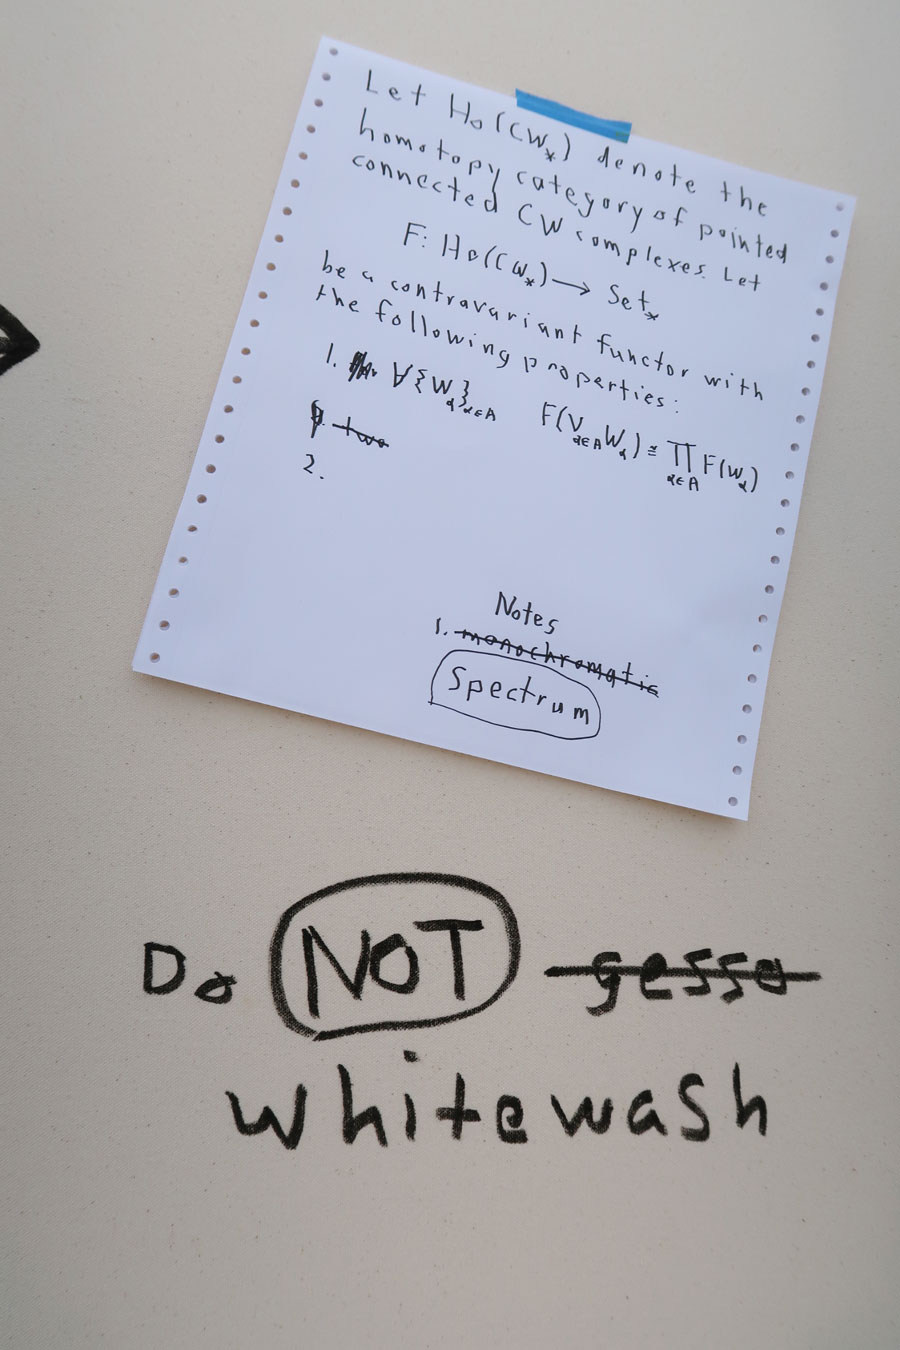 Let Ho(CW_*) denote the
homotopy category of pointed
connected CW complexes. Let
F: Ho(CW_*) → Set_*
be a contravariant functor with
the following properties:
1. ∀{W_α}_{α∈A} F(∨_{α∈A} W_α) ≅ ∏_{α∈A} F(W_α)
two
2.
Notes
1. monochromatic
Spectrum
Do NOT gesso
whitewash